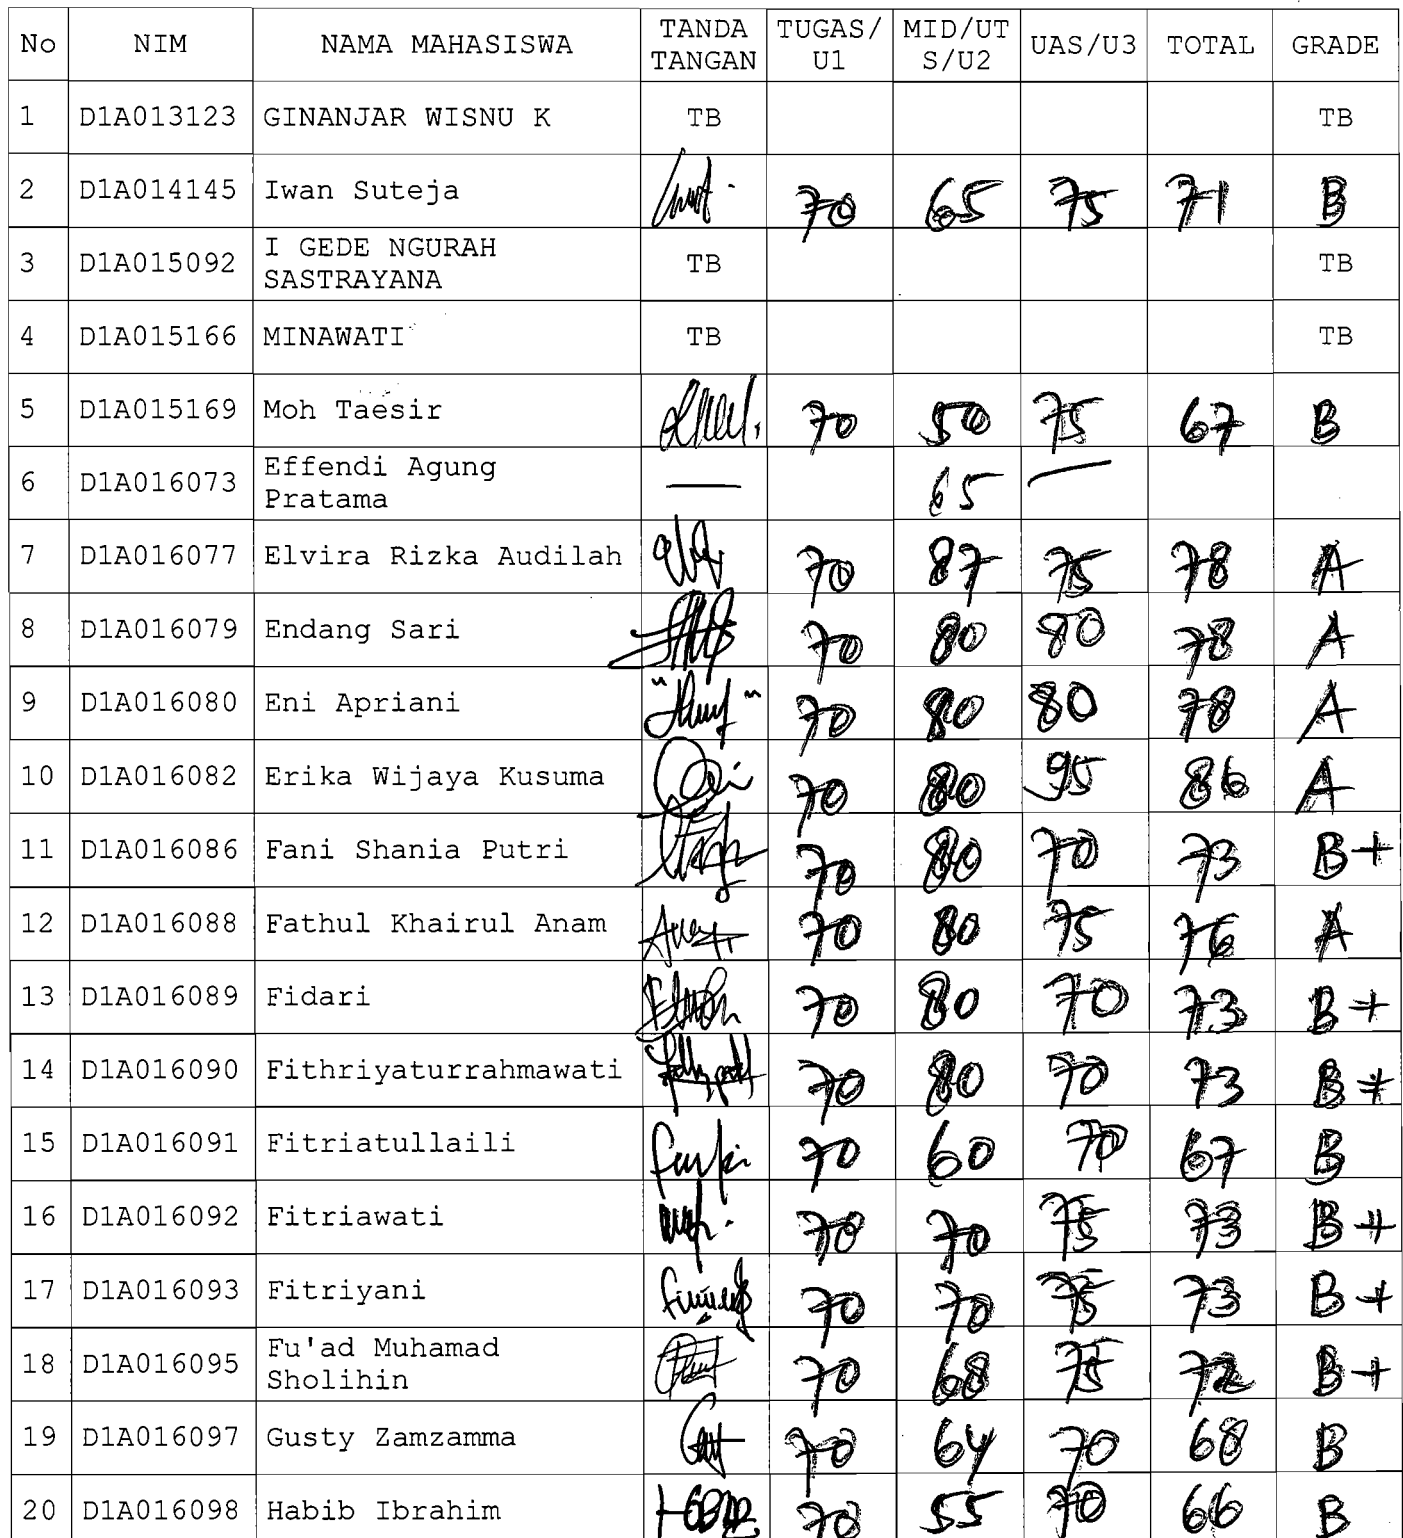 No NIM NAMA MAHASISWA TANDA TANGAN TUGAS/U1 MID/UTS/U2 UAS/U3 TOTAL GRADE
1 D1A013123 GINANJAR WISNU K TB TB
2 D1A014145 Iwan Suteja 70 65 75 71 B
3 D1A015092 I GEDE NGURAH SASTRAYANA TB TB
4 D1A015166 MINAWATI TB TB
5 D1A015169 Moh Taesir 70 50 75 67 B
6 D1A016073 Effendi Agung Pratama — 65 —
7 D1A016077 Elvira Rizka Audilah 70 87 75 78 A
8 D1A016079 Endang Sari 70 80 80 78 A
9 D1A016080 Eni Apriani 70 80 80 78 A
10 D1A016082 Erika Wijaya Kusuma 70 80 95 86 A
11 D1A016086 Fani Shania Putri 70 80 70 73 B+
12 D1A016088 Fathul Khairul Anam 70 80 75 76 A
13 D1A016089 Fidari 70 80 70 73 B+
14 D1A016090 Fithriyaturrahmawati 70 80 70 73 B+
15 D1A016091 Fitriatullaili 70 60 70 67 B
16 D1A016092 Fitriawati 70 70 75 73 B+
17 D1A016093 Fitriyani 70 70 75 73 B+
18 D1A016095 Fu'ad Muhamad Sholihin 70 68 75 72 B+
19 D1A016097 Gusty Zamzamma 70 64 70 68 B
20 D1A016098 Habib Ibrahim 70 55 70 66 B